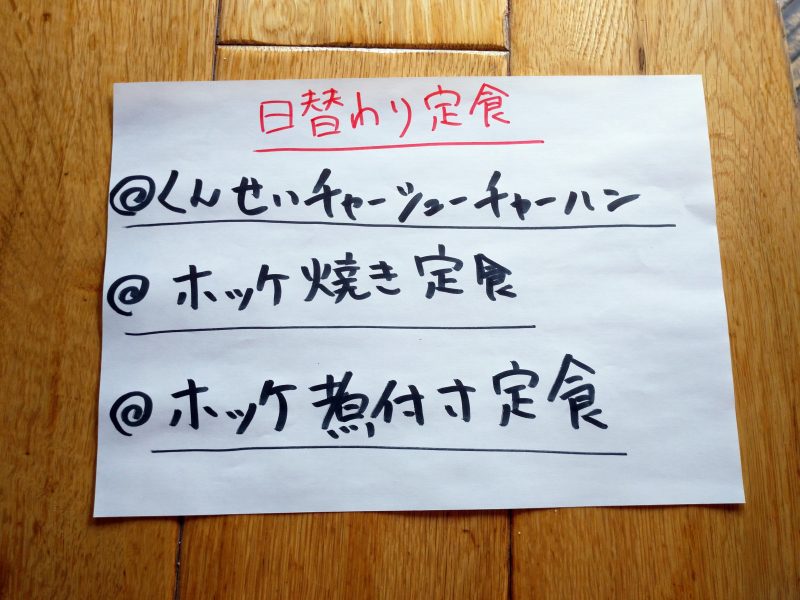 日替わり定食
@くんせいチャーシューチャーハン
@ホッケ焼き定食
@ホッケ煮付寸定食